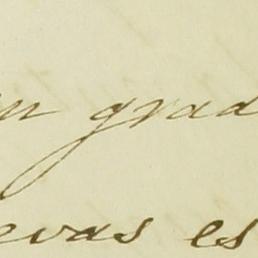 n grad
evas es